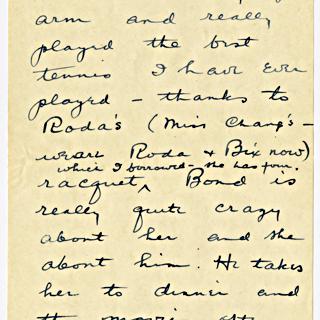 arm and really
played the best
tennis I have ever
played – thanks to
Roda's (Miss Chang's –
we are Roda & Bix now)
which I borrowed – she has four.
racquet ^ Bond is
really quite crazy
about her and she
about him. He takes
her to dinner and